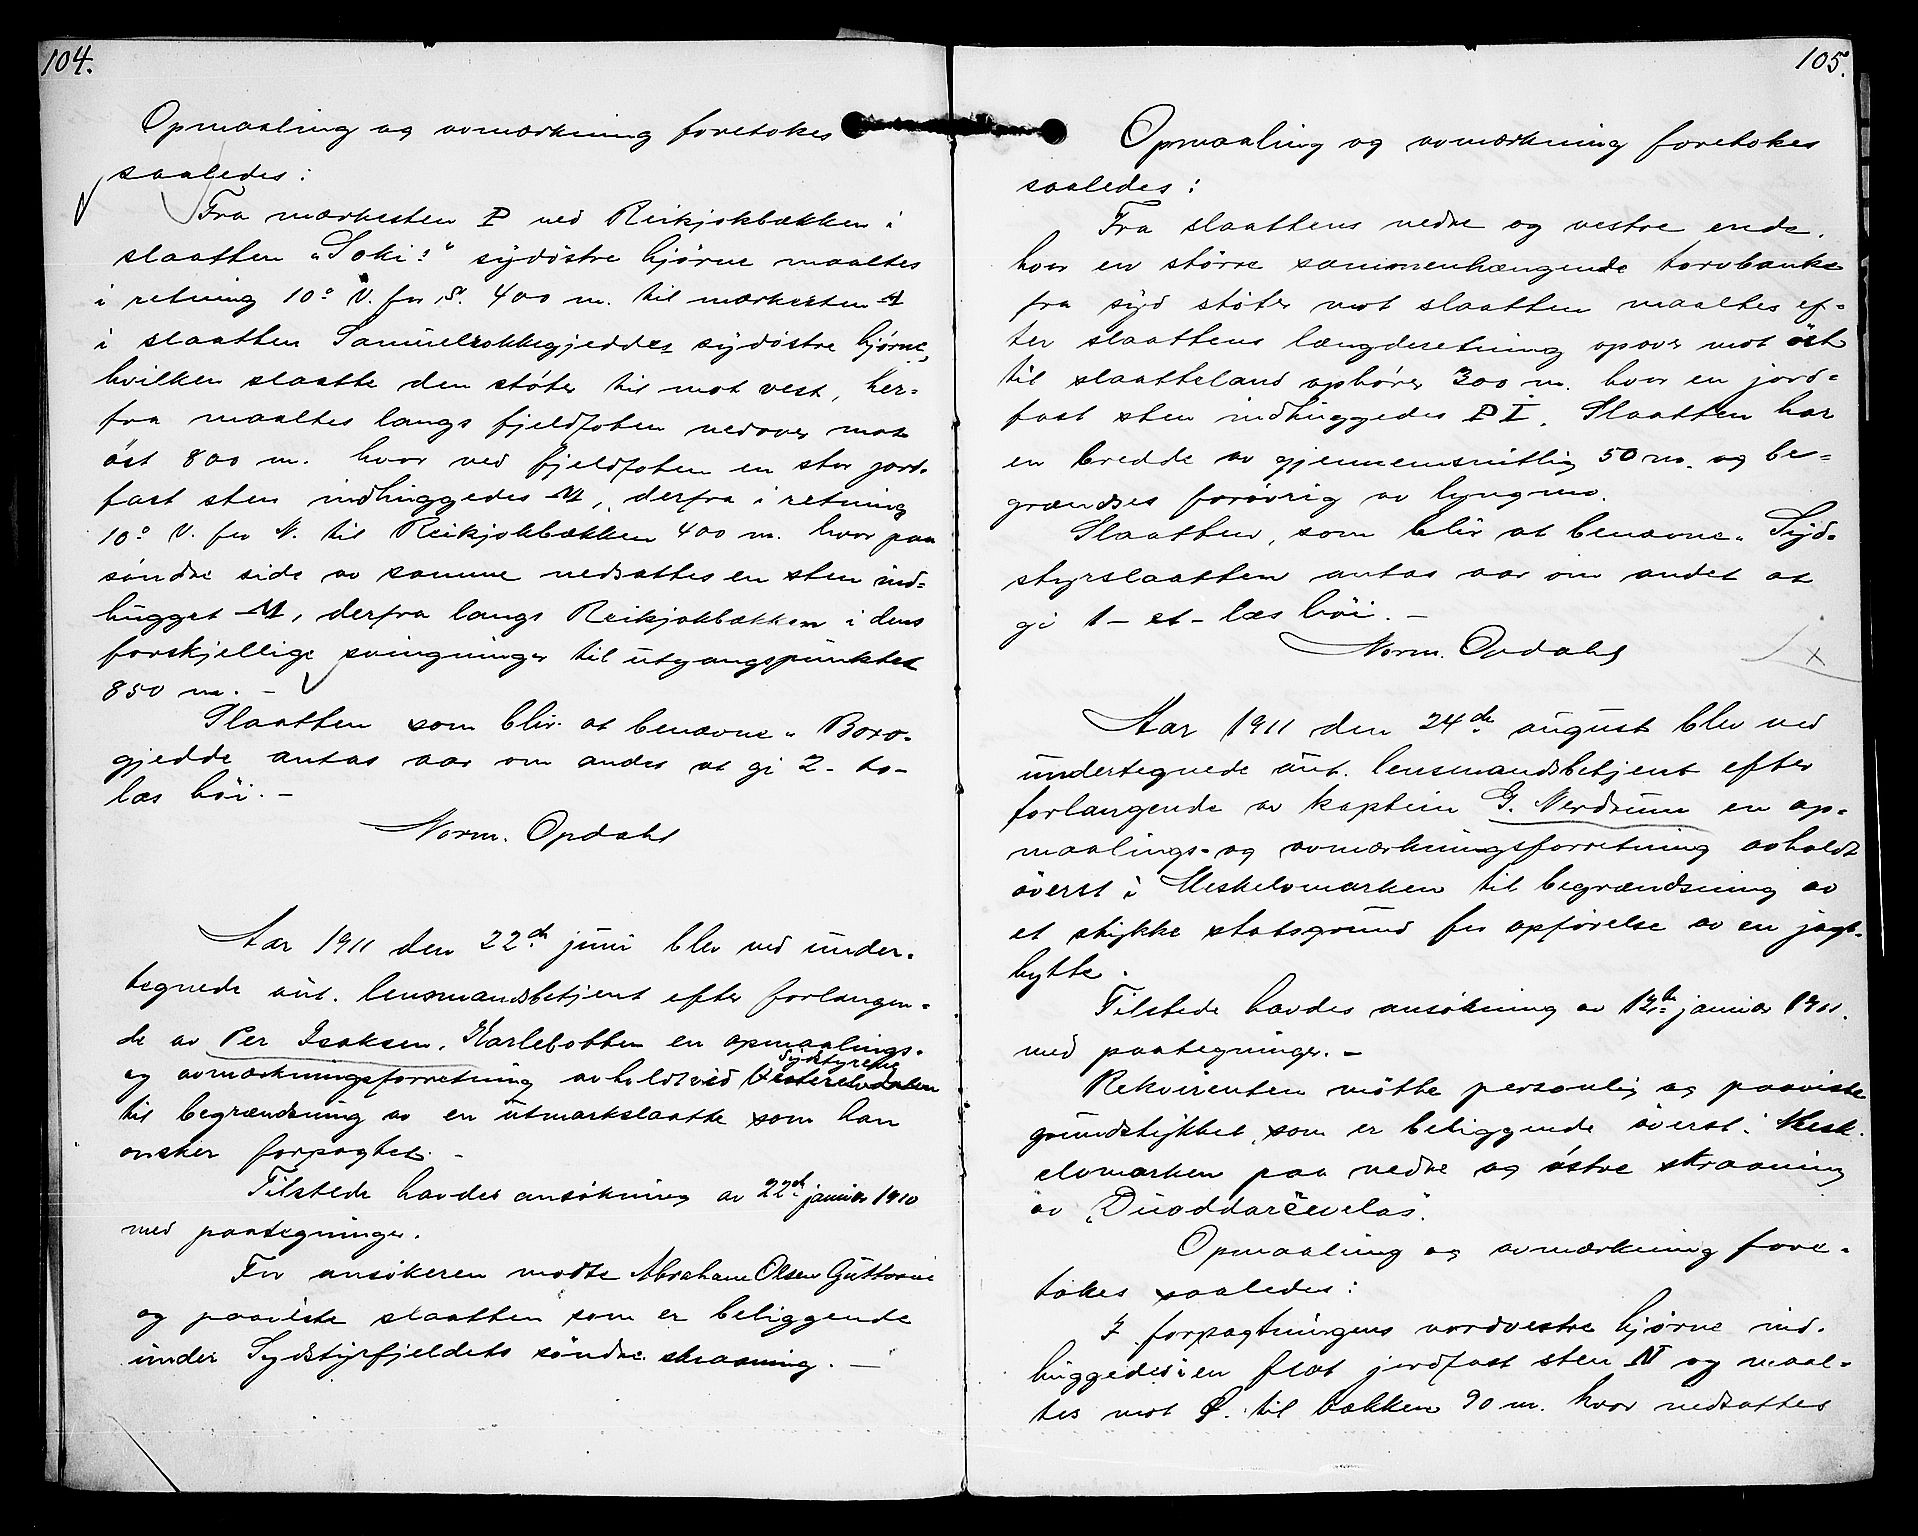 104.
Opmaaling og avmærkning foretokes
saaledes:
Fra mærkesten P ved Reikjokbækken i
slaatten "Soki:" sydøstre hjørne maaltes
i retning 10° V. for S. 400 m. til mærkesten
i slaatten Samuelsokkegjeddes sydøstre hjørne,
hvilken slaatte den støter til mot vest, her-
fra maaltes langs fjeldfoten nedover mot
øst 800 m. hvor ved fjeldfoten en stor jord-
fast sten indhuggedes M, derfra i retning
10° V. for N. til Reikjokbækken 400 m. hvor paa
søndre side av samme nedsattes en sten ind-
hugget M, derfra langs Reikjokbækken i dens
forskjellige svingninger til utgangspunktet
850 m. -
Slaatten som blir at benævne "Boro-
gjedde antas aar om andet at gi 2 - to -
læs höi. -
Norm. Opdahl
Aar 1911 den 22de juni blev ved under-
tegnede aut. lensmandsbetjent efter forlangen-
de av Per Isaksen, Karlebotten en opmaalings-
Sydstyrene
og avmærkningsforretning avholdt ved Vesterelvdalen
til begrændsning av en utmarkslaatte som han
ønsker forpagtet. -
Tilstede havdes ansökning av 22de januar 1910
med paategninger.
For ansøkeren mødte Abraham Olsen Guttorm
og paaviste slaatten som er beliggende
under Sydstyrfjeldets søndre skraaning. -
105.
Opmaaling og avmærkning foretokes
saaledes:
Fra slaattens nedre og vestre ende,
hvor en større sammenhængende torvbanke
fra syd støter mot slaatten maaltes ef-
ter slaattens længderetning opover mot öst
til slaatteland ophører 300 m. hvor en jord-
fast sten indhuggedes P I. Slaatten har
en bredde av gjennemsnitlig 50 m. og be-
grændses forøvrig av lyngmo.
Slaatten, som blir at benævne "Syd-
styrslaatten antas aar om andet at
gi 1 - et - læs höi. -
Norm. Opdahl
Aar 1911 den 24de august blev ved
undertegnede aut. lensmandsbetjent efter
forlangende av kaptein G. Nerdrum en op-
maalings- og avmærkningsforretning avholdt
øverst i Meskelvmarken til begrændsning av
et stykke statsgrund for opførelse av en jagt-
hytte.
Tilstede havdes ansökning av 12te januar 1911.
med paategninger. -
Rekvirenten mötte personlig og paaviste
grundstykket, som er beliggende øverst i Mesk-
elvmarken paa nedre og østre skraaning
av "Duoddarčevelas".
Opmaaling og avmærkning fore-
tokes saaledes:
I forpagtningens nordvestre hjørne ind-
huggedes i en flat jordfast sten N og maal-
tes mot Ø. til bækken 90 m. hvor nedsattes